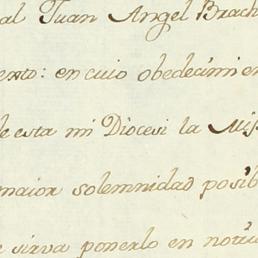 al Juan Angel Brach
ento: en cuio obedecimien
de esta mi Diocesi la Mis
maior solemnidad posib
e sirva ponerlo en notic